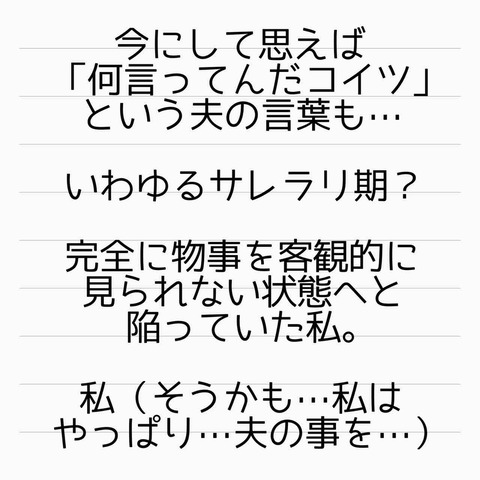 今にして思えば
「何言ってんだコイツ」
という夫の言葉も…
いわゆるサレラリ期？
完全に物事を客観的に
見られない状態へと
陥っていた私。
私（そうかも…私は
やっぱり…夫の事を…）